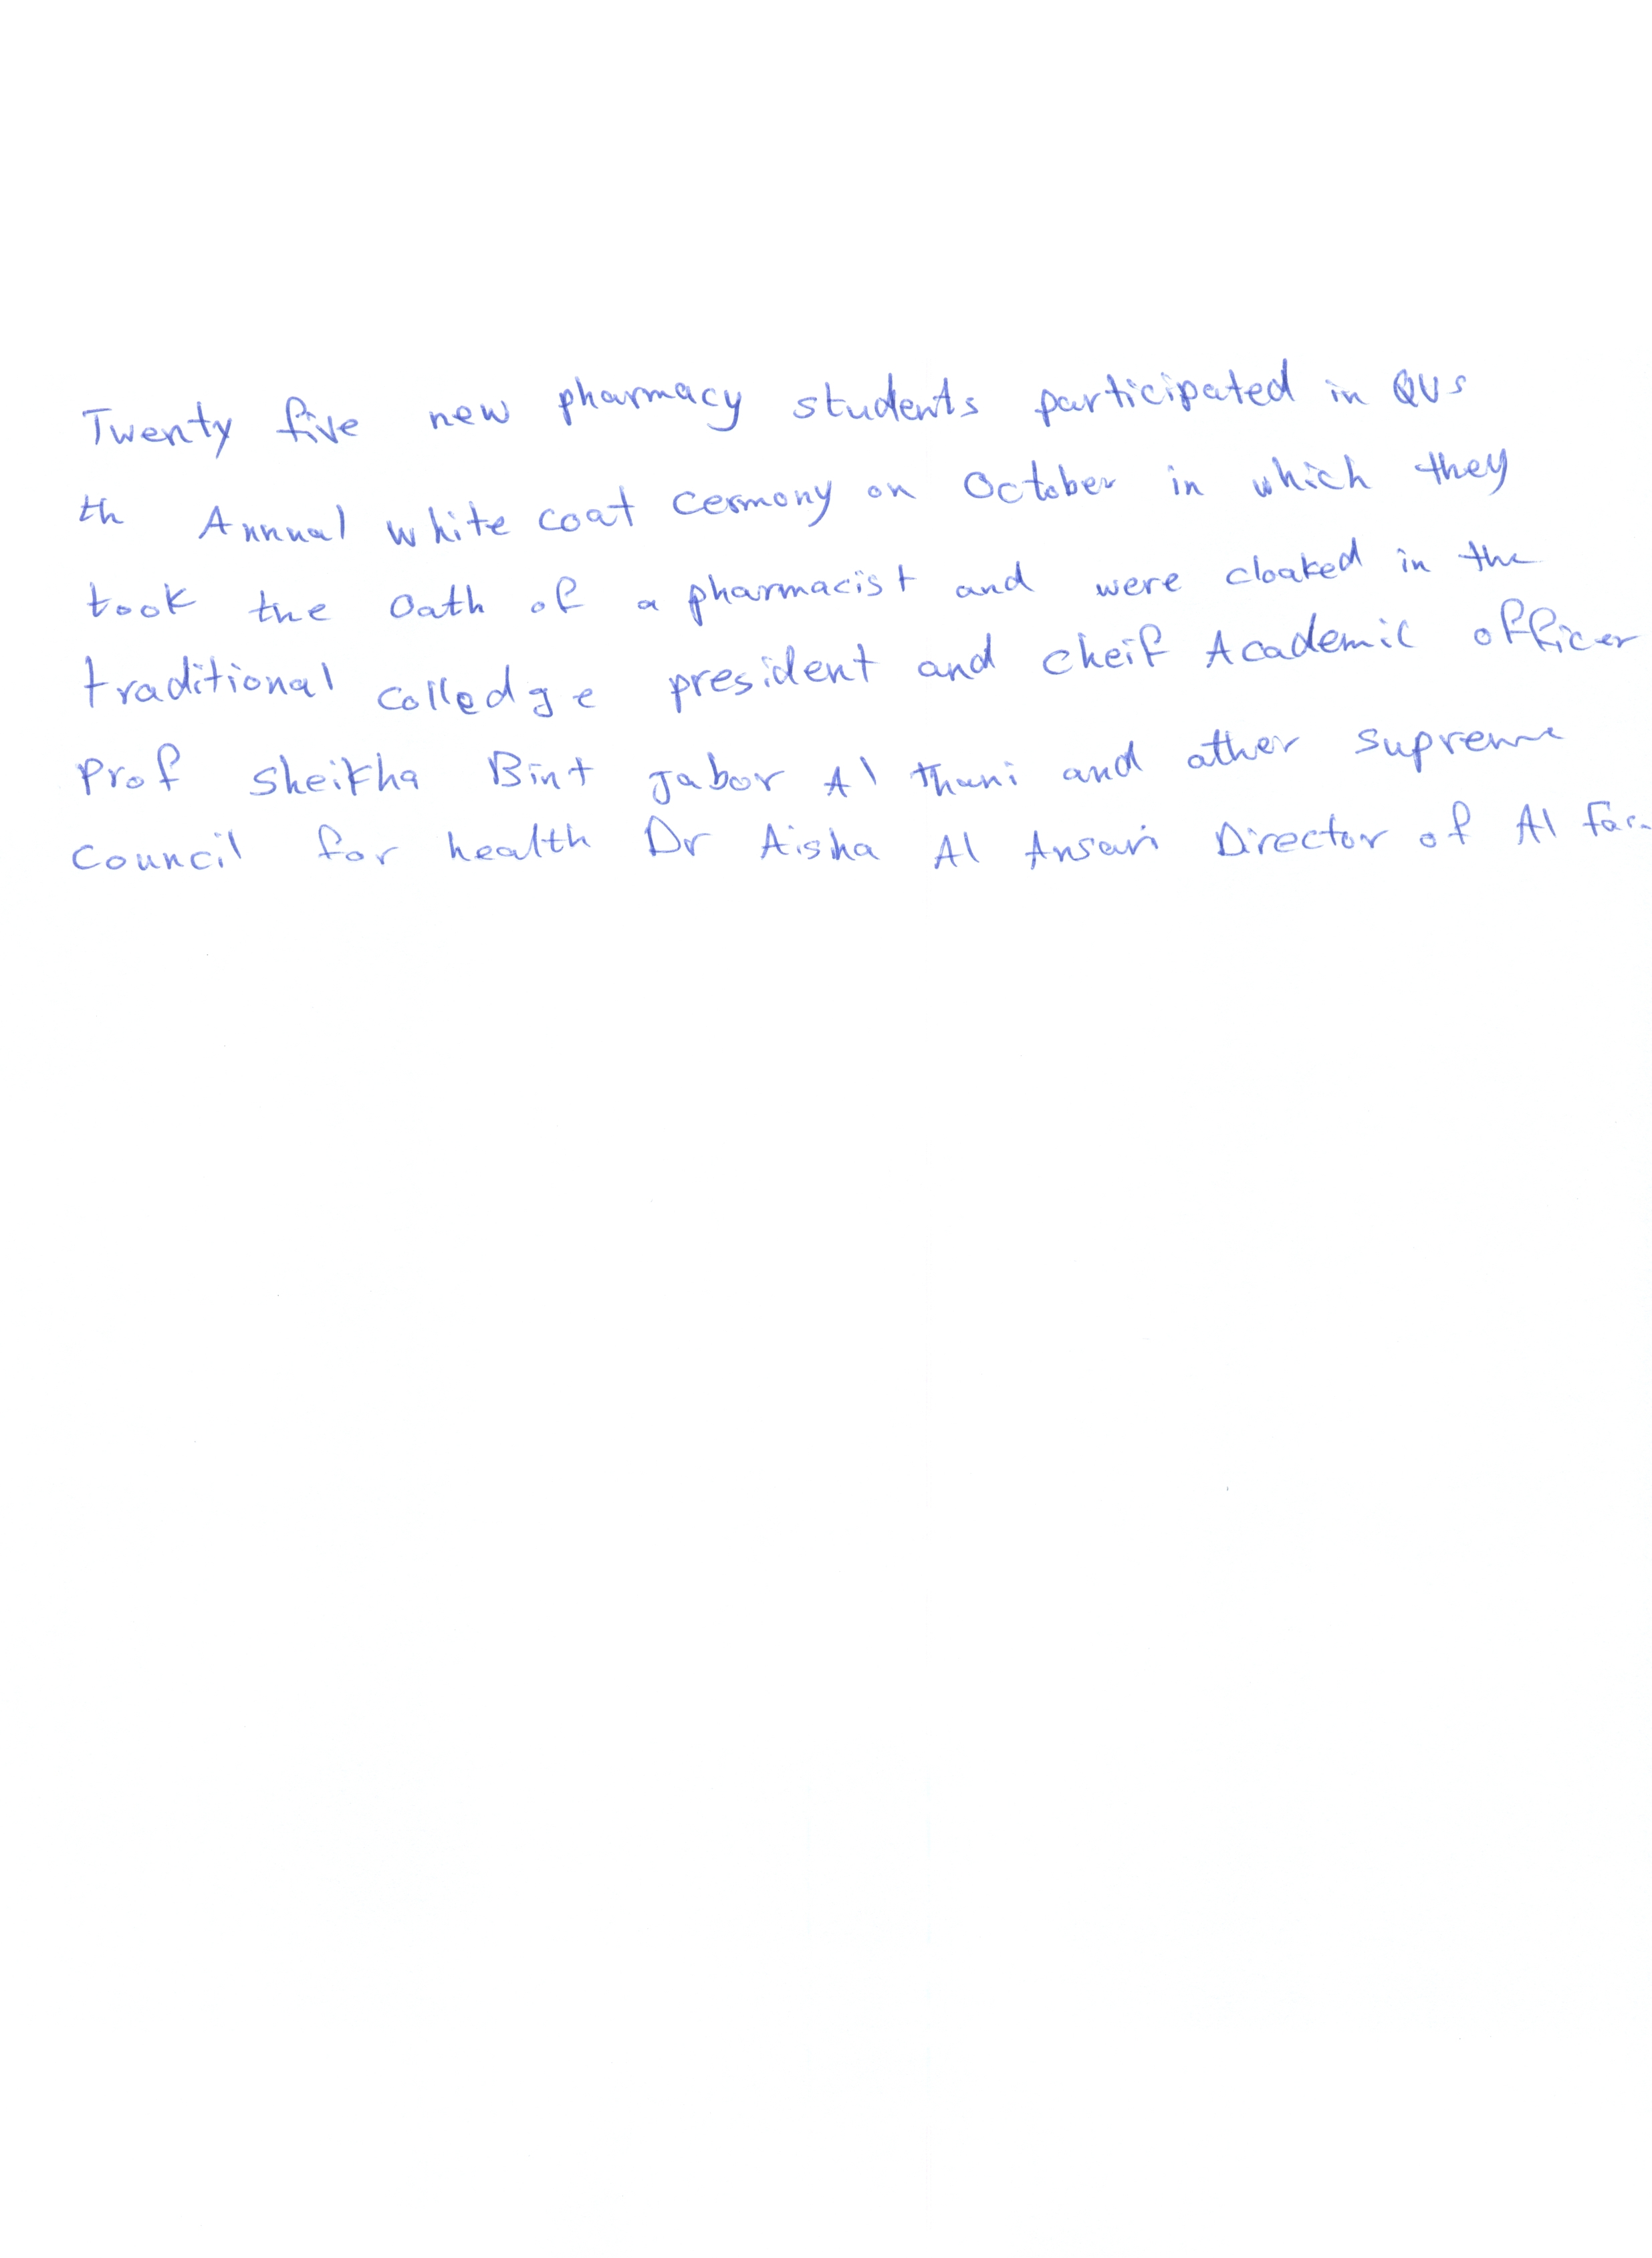 Twenty five new pharmacy students participated in QUs
th Annual white coat cermony on October in which they
took the Oath of a pharmacist and were cloaked in the
traditional colledge president and cheif Academic officer
Prof Sheikha Bint Jabor Al Thani and other supreme
council for health Dr Aisha Al Ansari Director of Al